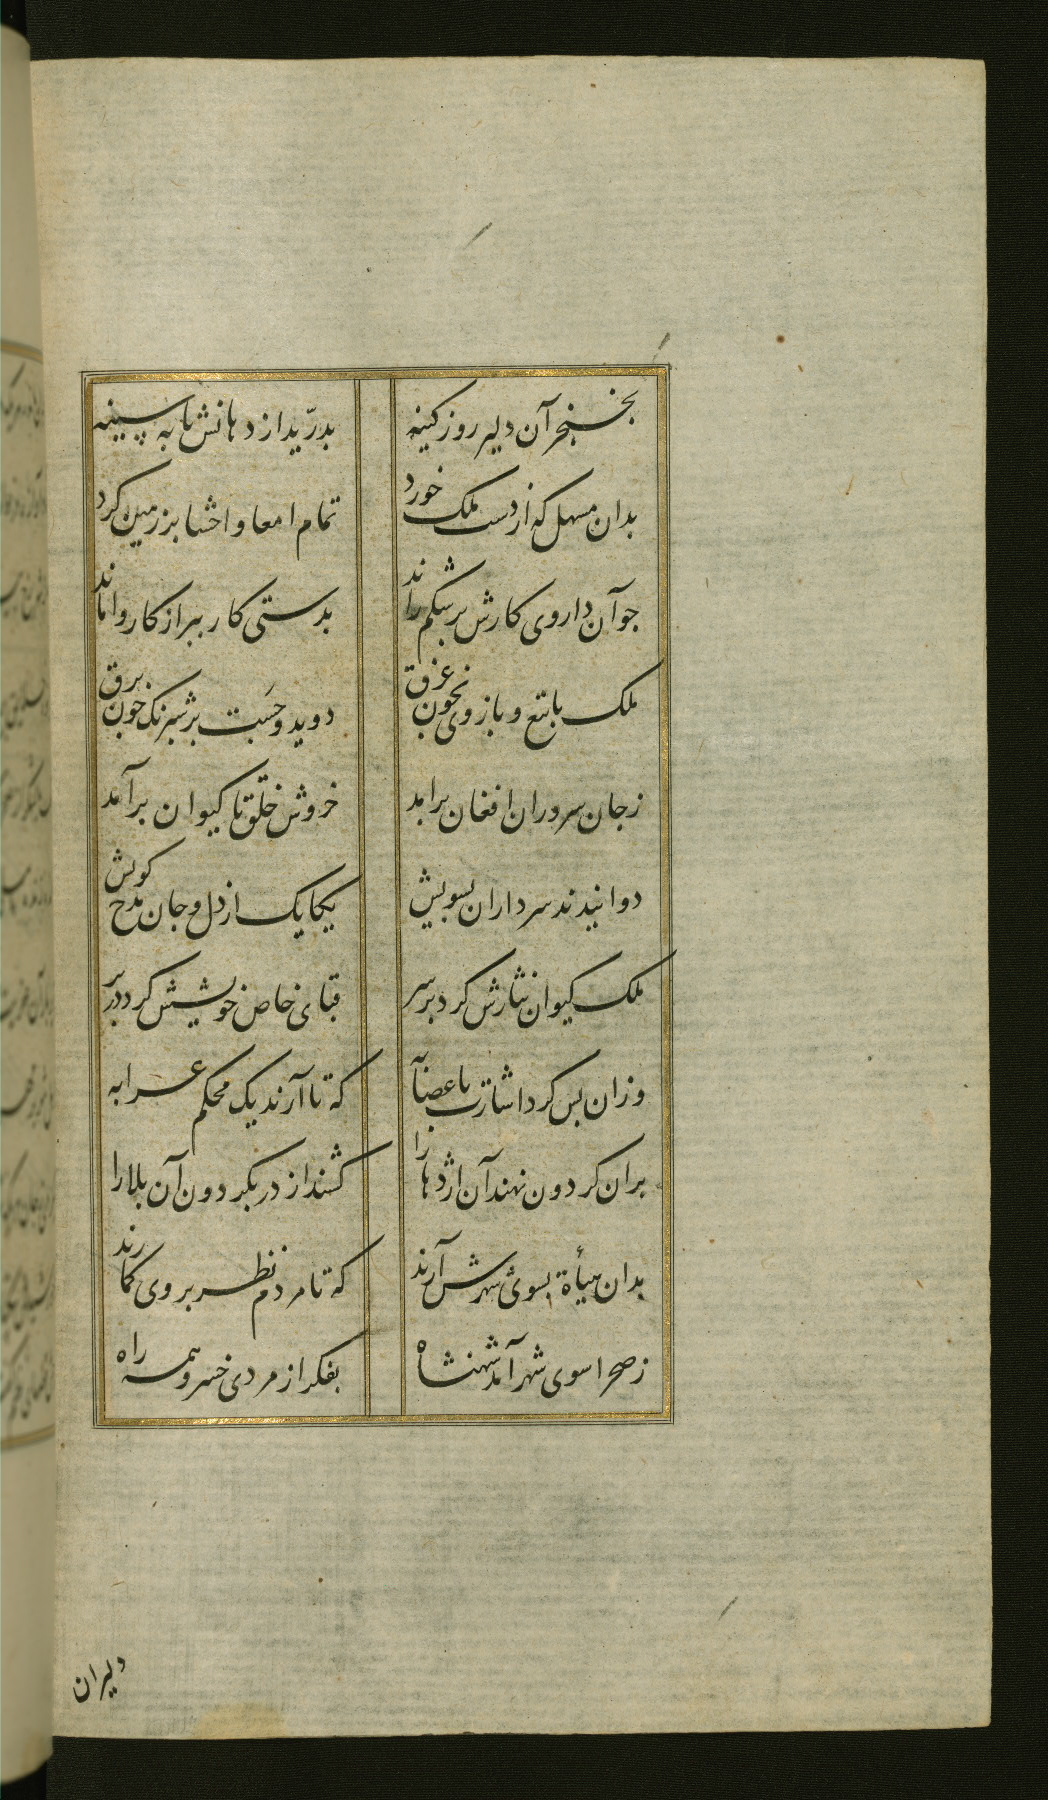 بخنجر آن دلیر روز کینه
بدرّید از دهانش تا به سینه
بدان مسهل که از دست ملک خورد
تمام امعا و احشا بر زمین کرد
جو آن داروی کارش بر شکم راند
بدستی کار ببر از کار وا ماند
ملک با تیغ و بازوی بخون غرق
دوید و جَست بر شبرنک چون برق
ز جان سروران افغان برامد
خروش خلق تا کیوان برآمد
دوانیدند سرداران بسویش
یکایک از دل و جان مدح کویش
ملک کیوان نثارش کرد بر سر
قبای خاص خویشش کرد در بر
وزان پس کرد اشارت با عصابه
که تا آرند یک محکم عرابه
بران کردون نهند آن اژدها را
کشند از در بکردون آن بلا را
بدان هیأة بسوی شهرش آرند
که تا مردم نظر بر وی کمارند
ز صحرا سوی شهر آمد شهنشاه
بفکر از مردی خسرو همه راه
دلیران